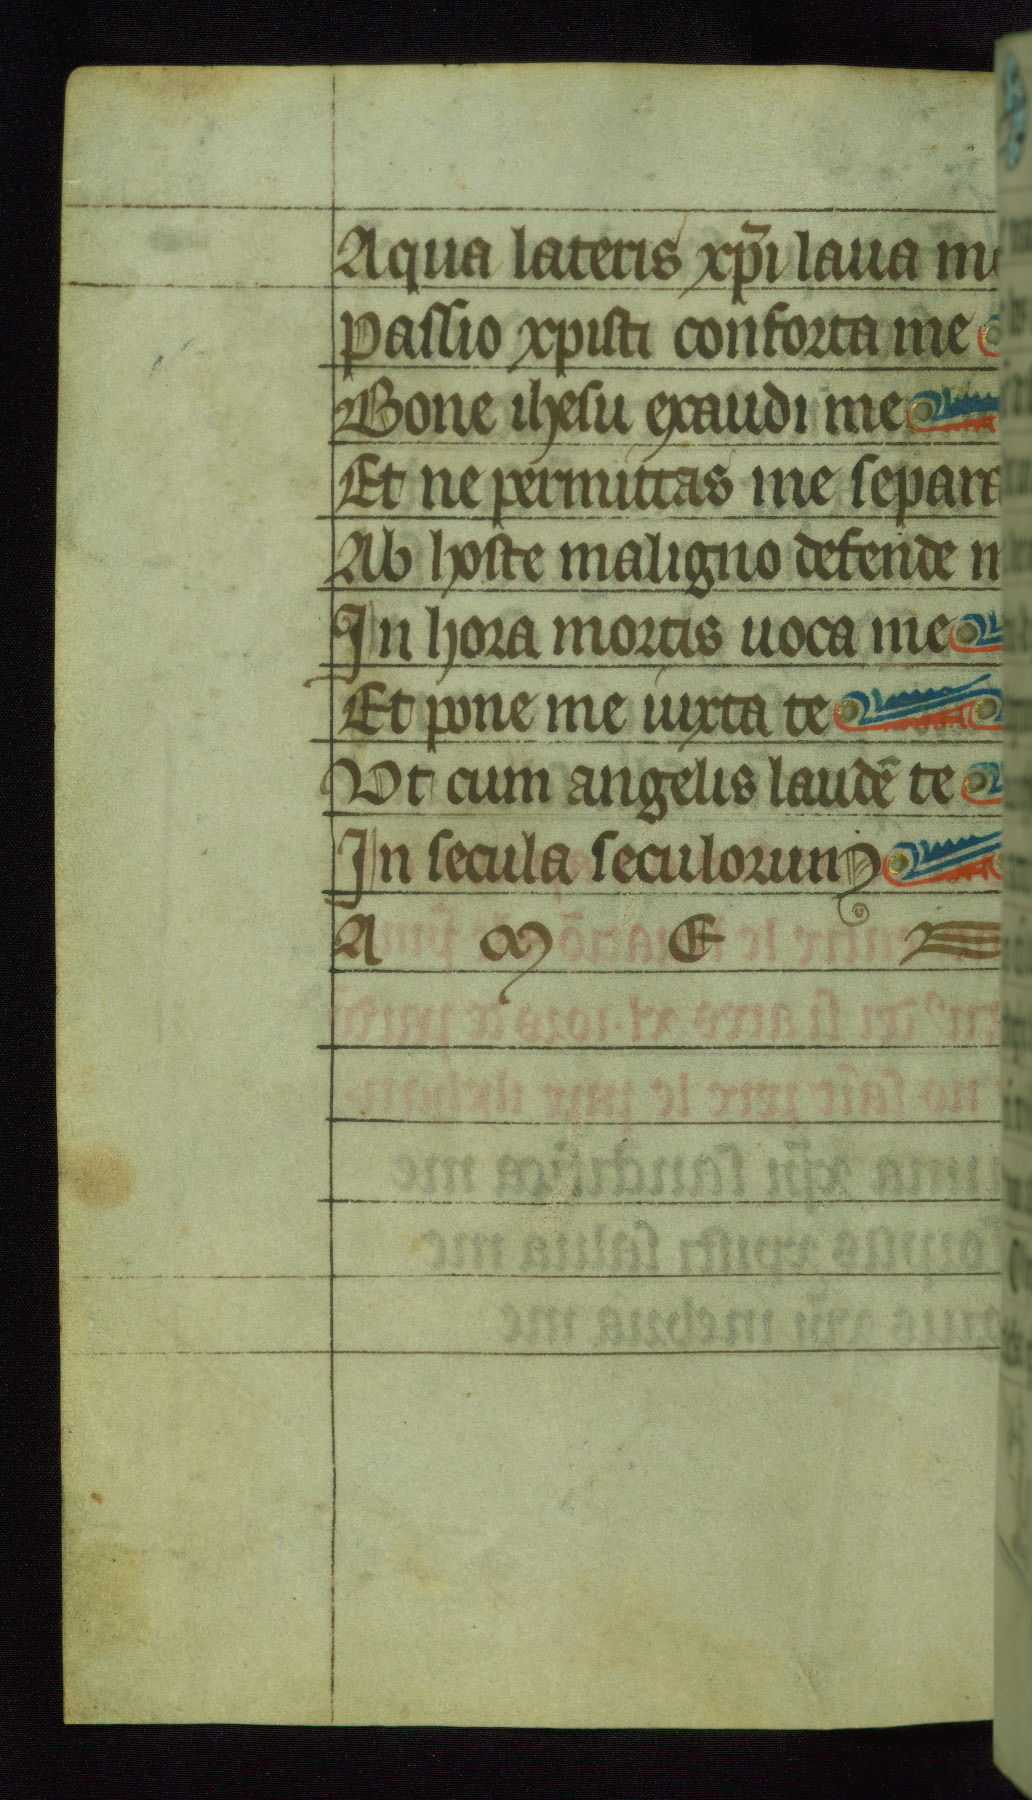 Aqua lateris xp̄i laua me
Passio xpisti conforta me
Bone ihesu exaudi me
Et ne permittas me separa
Ab hoste maligno defende m
In hora mortis uoca me
Et pone me iuxta te
Vt cum angelis laudē te
In secula seculorum
A M E